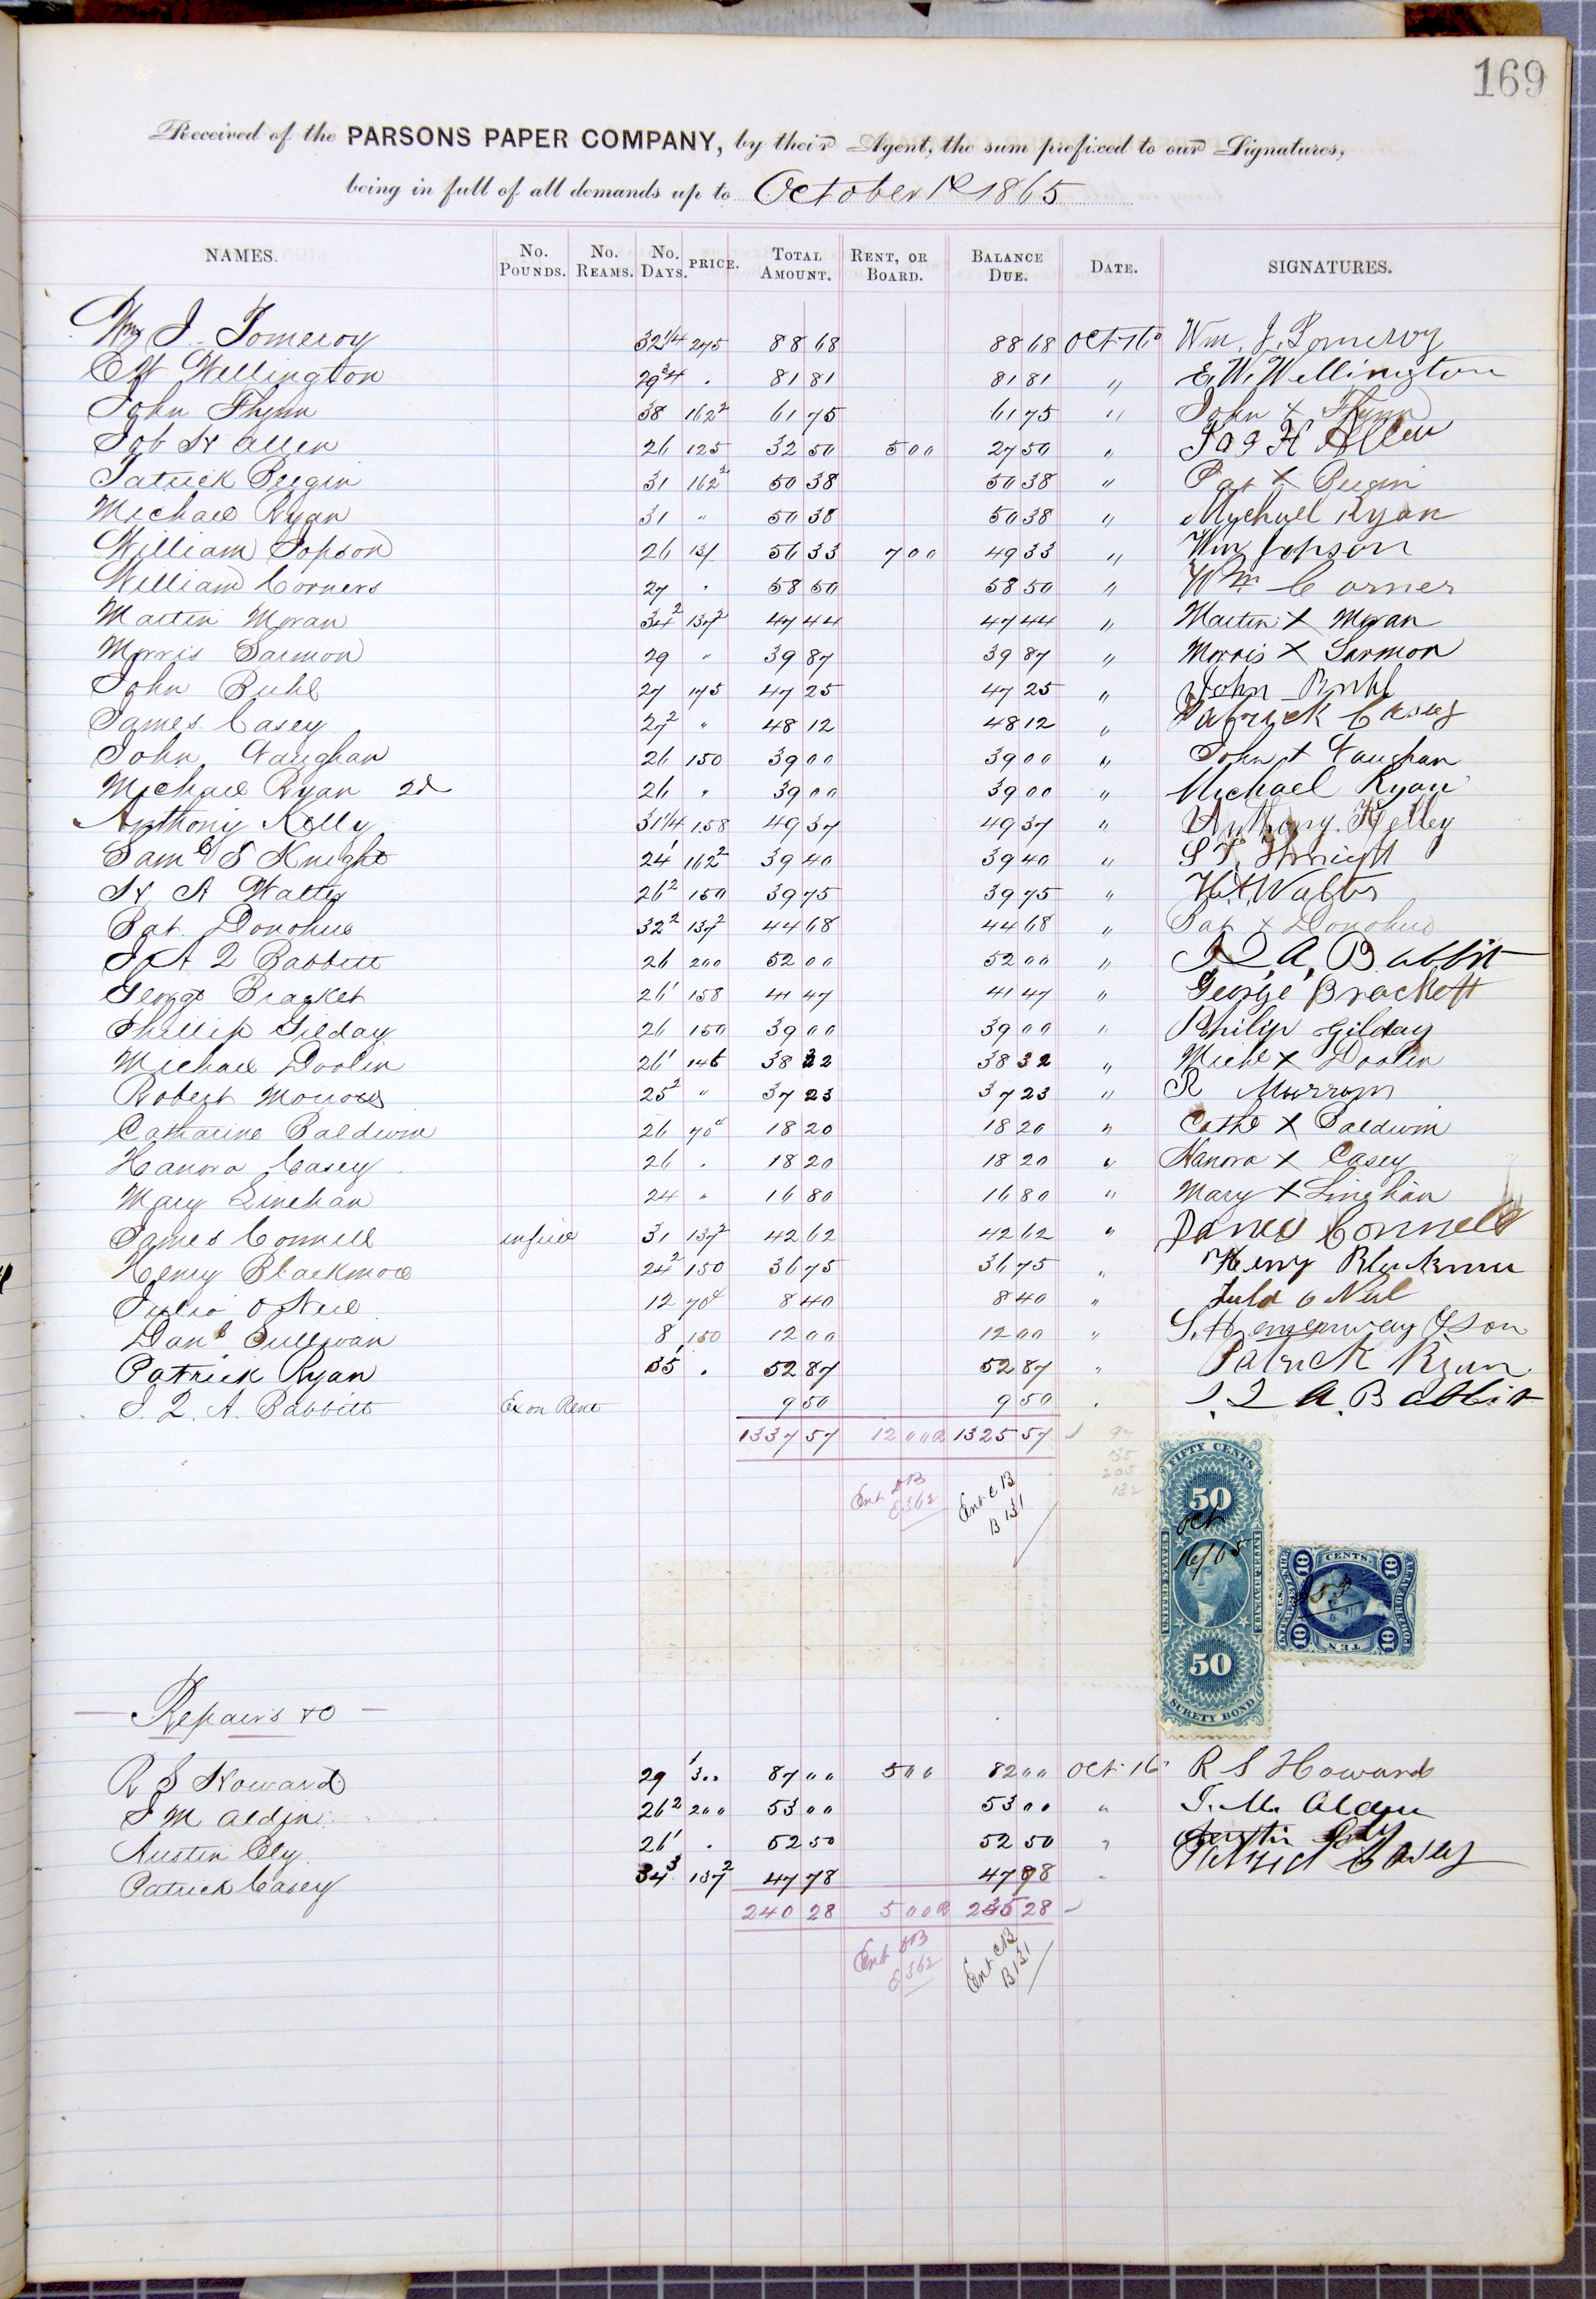 169
Received of the PARSONS PAPER COMPANY, by their Agent, the sum prefixed to our Signatures,
being in full of all demands up to October 1st 1865
NAMES. No. Pounds. No. Reams. No. Days. PRICE. Total Amount. Rent, or Board. Balance Due. Date. SIGNATURES.
Wm J. Pomeroy 32 1/4 275 88 68 88 68 Oct 16 Wm. J. Pomeroy
E W Wellington 29 3/4 . 81 81 81 81 " E. W. Wellington
John Flynn 38 162 2 61 75 61 75 " John X Flynn
Job H Allen 26 125 32 50 5 00 27 50 " Job H Allen
Patrick Bergin 31 162 2 50 38 50 38 " Pat X Bergin
Michael Ryan 31 " 50 38 50 38 " Mychael Ryan
William Jopson 26 56 33 7 00 49 33 " Wm Jopson
William Corners 27 " 58 50 58 50 " Wm Corner
Martin Moran 34 2 137 2 47 44 47 44 " Martin X Moran
Morris Sarmon 29 " 39 87 39 87 " Morris X Sarmon
John Buhl 27 175 47 25 47 25 " John Buhl
James Casey 27 2 " 48 12 48 12 " Patrick Casey
John Vaughan 26 150 39 00 39 00 " John X Vaughan
Michael Ryan 2d 26 " 39 00 39 00 " Michael Ryan
Anthony Kelly 31 1/4 158 49 37 49 37 " Anthony Kelley
Saml S Knight 24 1 162 2 39 40 39 40 " S S Knight
H A Watts 26 2 150 39 75 39 75 "
Pat. Donohue 32 2 137 2 44 68 44 68 " Pat X Donohue
J A Q Babbitt 26 200 52 00 52 00 " J Q A Babbit
George Bracket 26 1 158 41 47 41 47 " George Brackett
Phillip Gilday 26 150 39 00 39 00 " Philip Gilday
Michael Doolin 26 1 146 38 32 38 32 " Michl X Doolin
Robert Morrow 25 2 " 37 23 37 23 " R Morrow
Catharine Baldwin 26 70c 18 20 18 20 " Cathe X Baldwin
Hanora Casey 26 . 18 20 18 20 " Hanora X Casey
Mary Linehan 24 " 16 80 16 80 " Mary X Linehan
James Connell in full 31 137 2 42 62 42 62 " James Connell
Henry Blackmore 24 2 150 36 75 36 75 " Henry Blackmer
Julia O Neil 12 70c 8 40 8 40 " Julia O Neil
Danl Sullivan 8 150 12 00 12 00 " S. Hemenway & Son
Patrick Ryan 35 1 . 52 87 52 87 " Patrick Ryan
J. Q. A. Babbitt Ex on Rent 9 50 9 50 . J. Q. A. Babbit
1337 57 12 00 1325 57
97
135
205
132
Ent DB
E 362
Ent CB
B 131
FIFTY CENTS
50
Oct
16/65
UNITED STATES INTER. REVENUE
50
SURETY BOND
TEN CENTS
10 10 10 10
U.S. INTER. REVENUE
Repairs &c
R S Howard 29 1 3 00 87 00 5 00 82 00 Oct 16 R S Howard
J M Aldin 26 2 200 53 00 53 00 " J. M. Alden
Austin Ely 26 1 . 52 50 52 50 " Austin Ely
Patrick Casey 34 3 137 2 47 78 47 78 " Patrick Casey
240 28 5 00 235 28
Ent DB
E 362
Ent CB
B 131